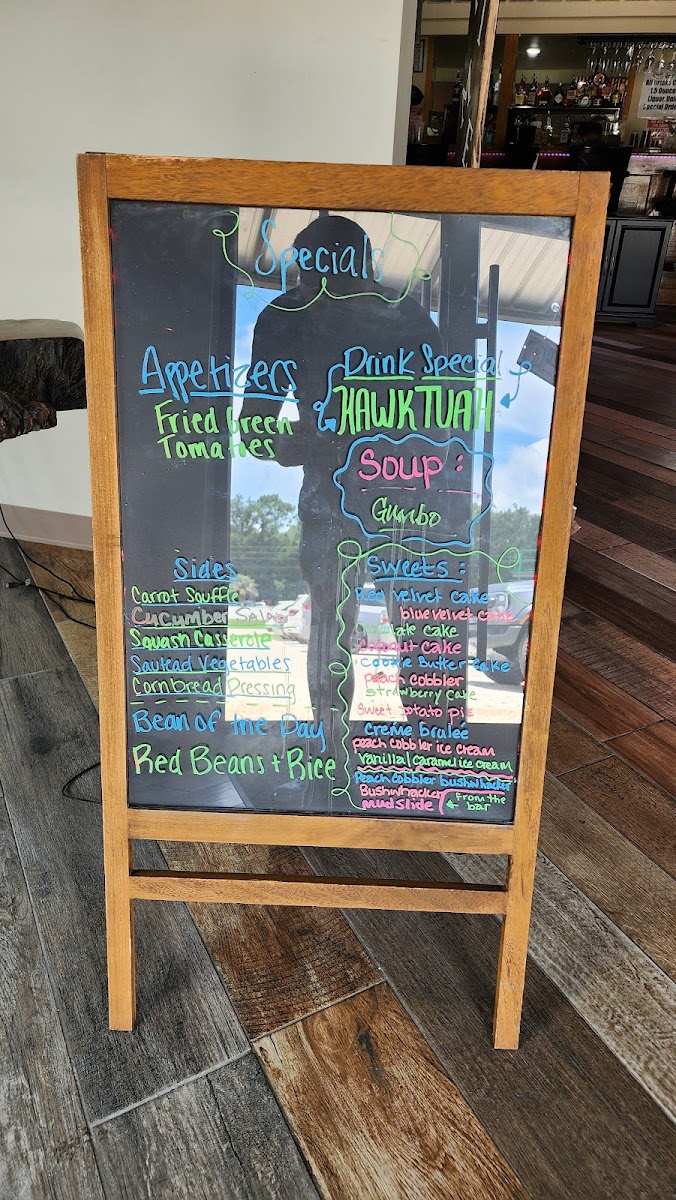 Specials
Appetizers
Fried Green
Tomatoes
Drink Special
HAWK TUAH
Soup:
Gumbo
Sides
Carrot Souffle
Cucumber Salad
Squash Casserole
Sautead Vegetables
Cornbread Dressing
Bean of the Day
Red Beans + Rice
Sweets:
Red velvet cake
blue velvet cake
chocolate cake
Coconut cake
Cookie Butter Cake
peach cobbler
strawberry cake
sweet potato pie
Creme brulee
peach cobbler ice cream
Vanilla/caramel ice cream
Peach cobbler bushwhacker
Bushwhacker
mudslide
from the
bar
1.5 Ounce
Liquor